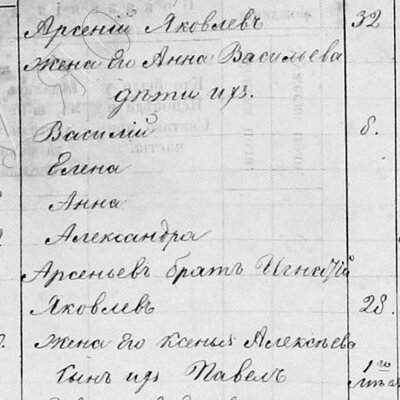 Арсеній Яковлевъ 32
жена его Анна Васильева
дѣти ихъ.
Василій 8.
Елена
Анна
Александра
Арсеньевъ братъ Игнатій
Яковлевъ 28.
жена его Ксенья Алексѣева
сынъ ихъ Павелъ 1го